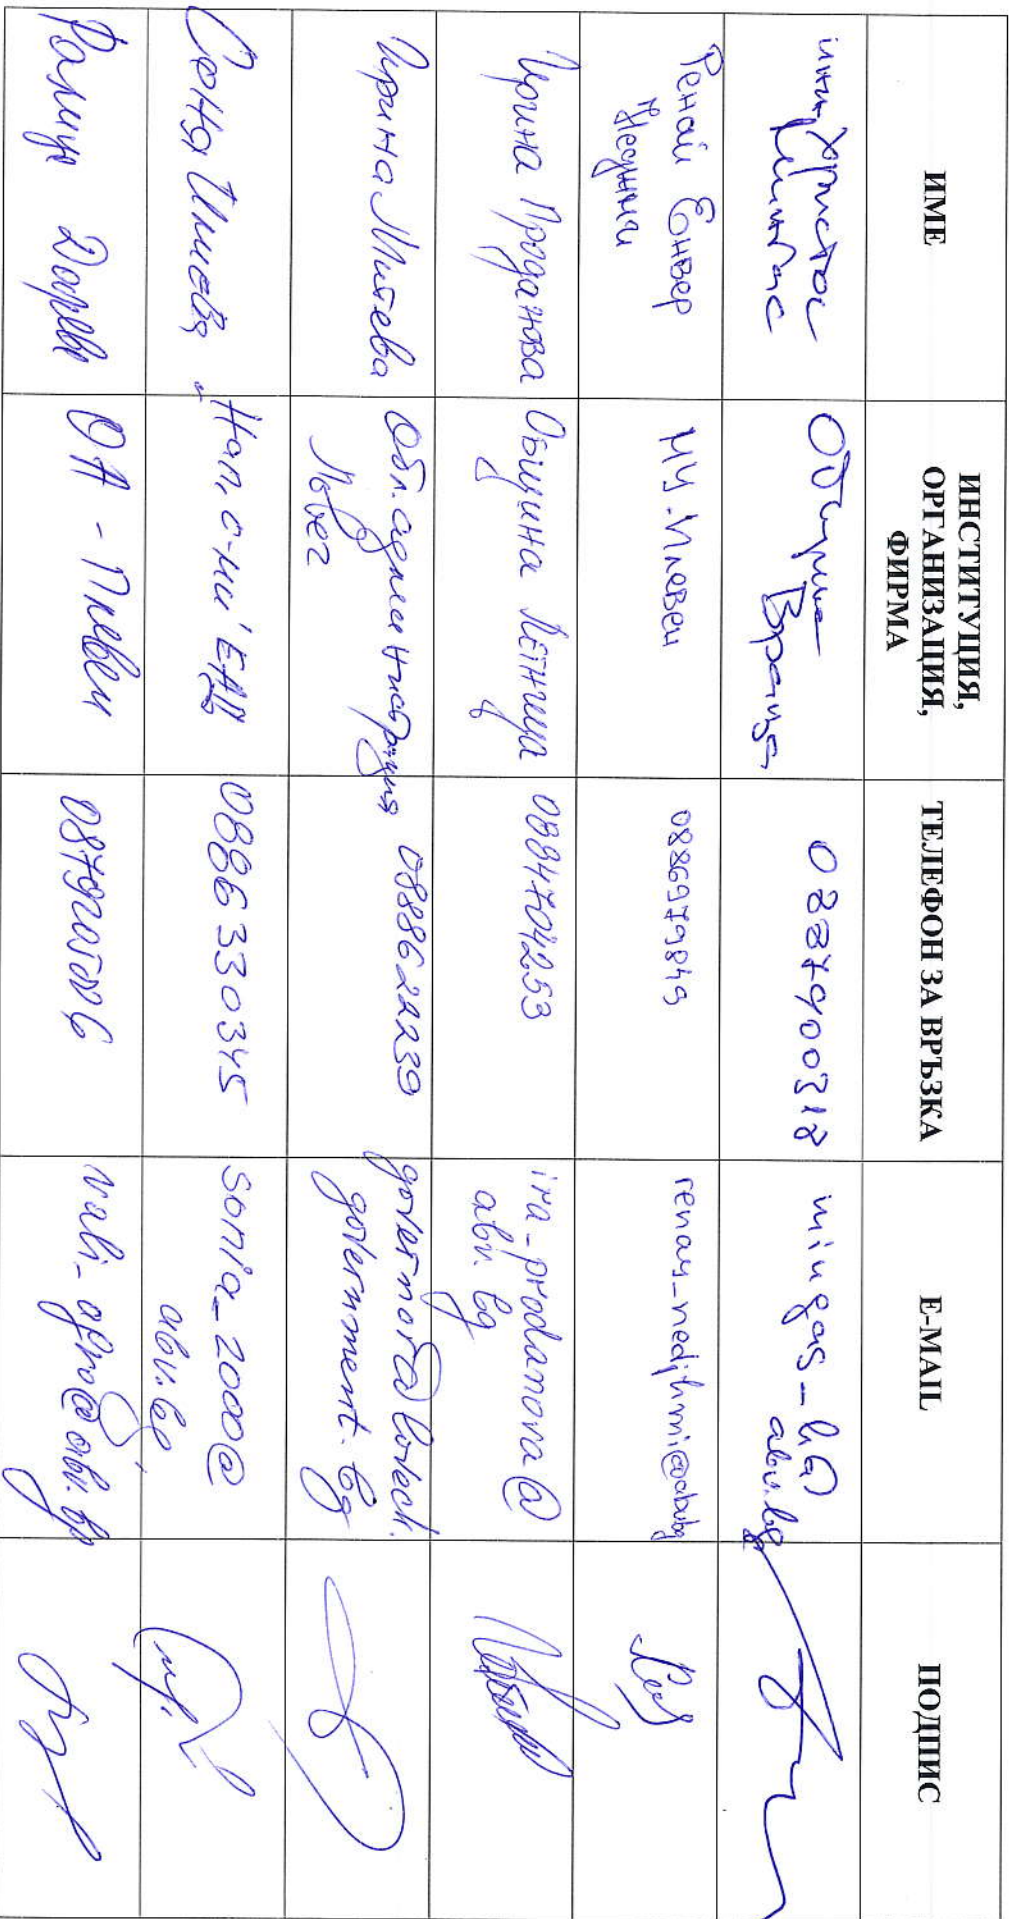 ИМЕ
ИНСТИТУЦИЯ,
ОРГАНИЗАЦИЯ,
ФИРМА
ТЕЛЕФОН ЗА ВРЪЗКА
E-MAIL
ПОДПИС
инж. Христос
Мингас
Община
Враца
mingas_h@
abv.bg
Ренай Енвер
Неджми
Плевен
0886979849
renay_nedjhmi@abv.bg
Ирина Проданова
Община Летница
0884704253
ira_prodanova@
abv.bg
Ирина Митева
Обл. администрация
Ловеч
0888622239
governor@lovech.
government.bg
Соня Илиева
ЕАД
0886330345
sonia_2000@
abv.bg
ОА - Плевен
abv.bg